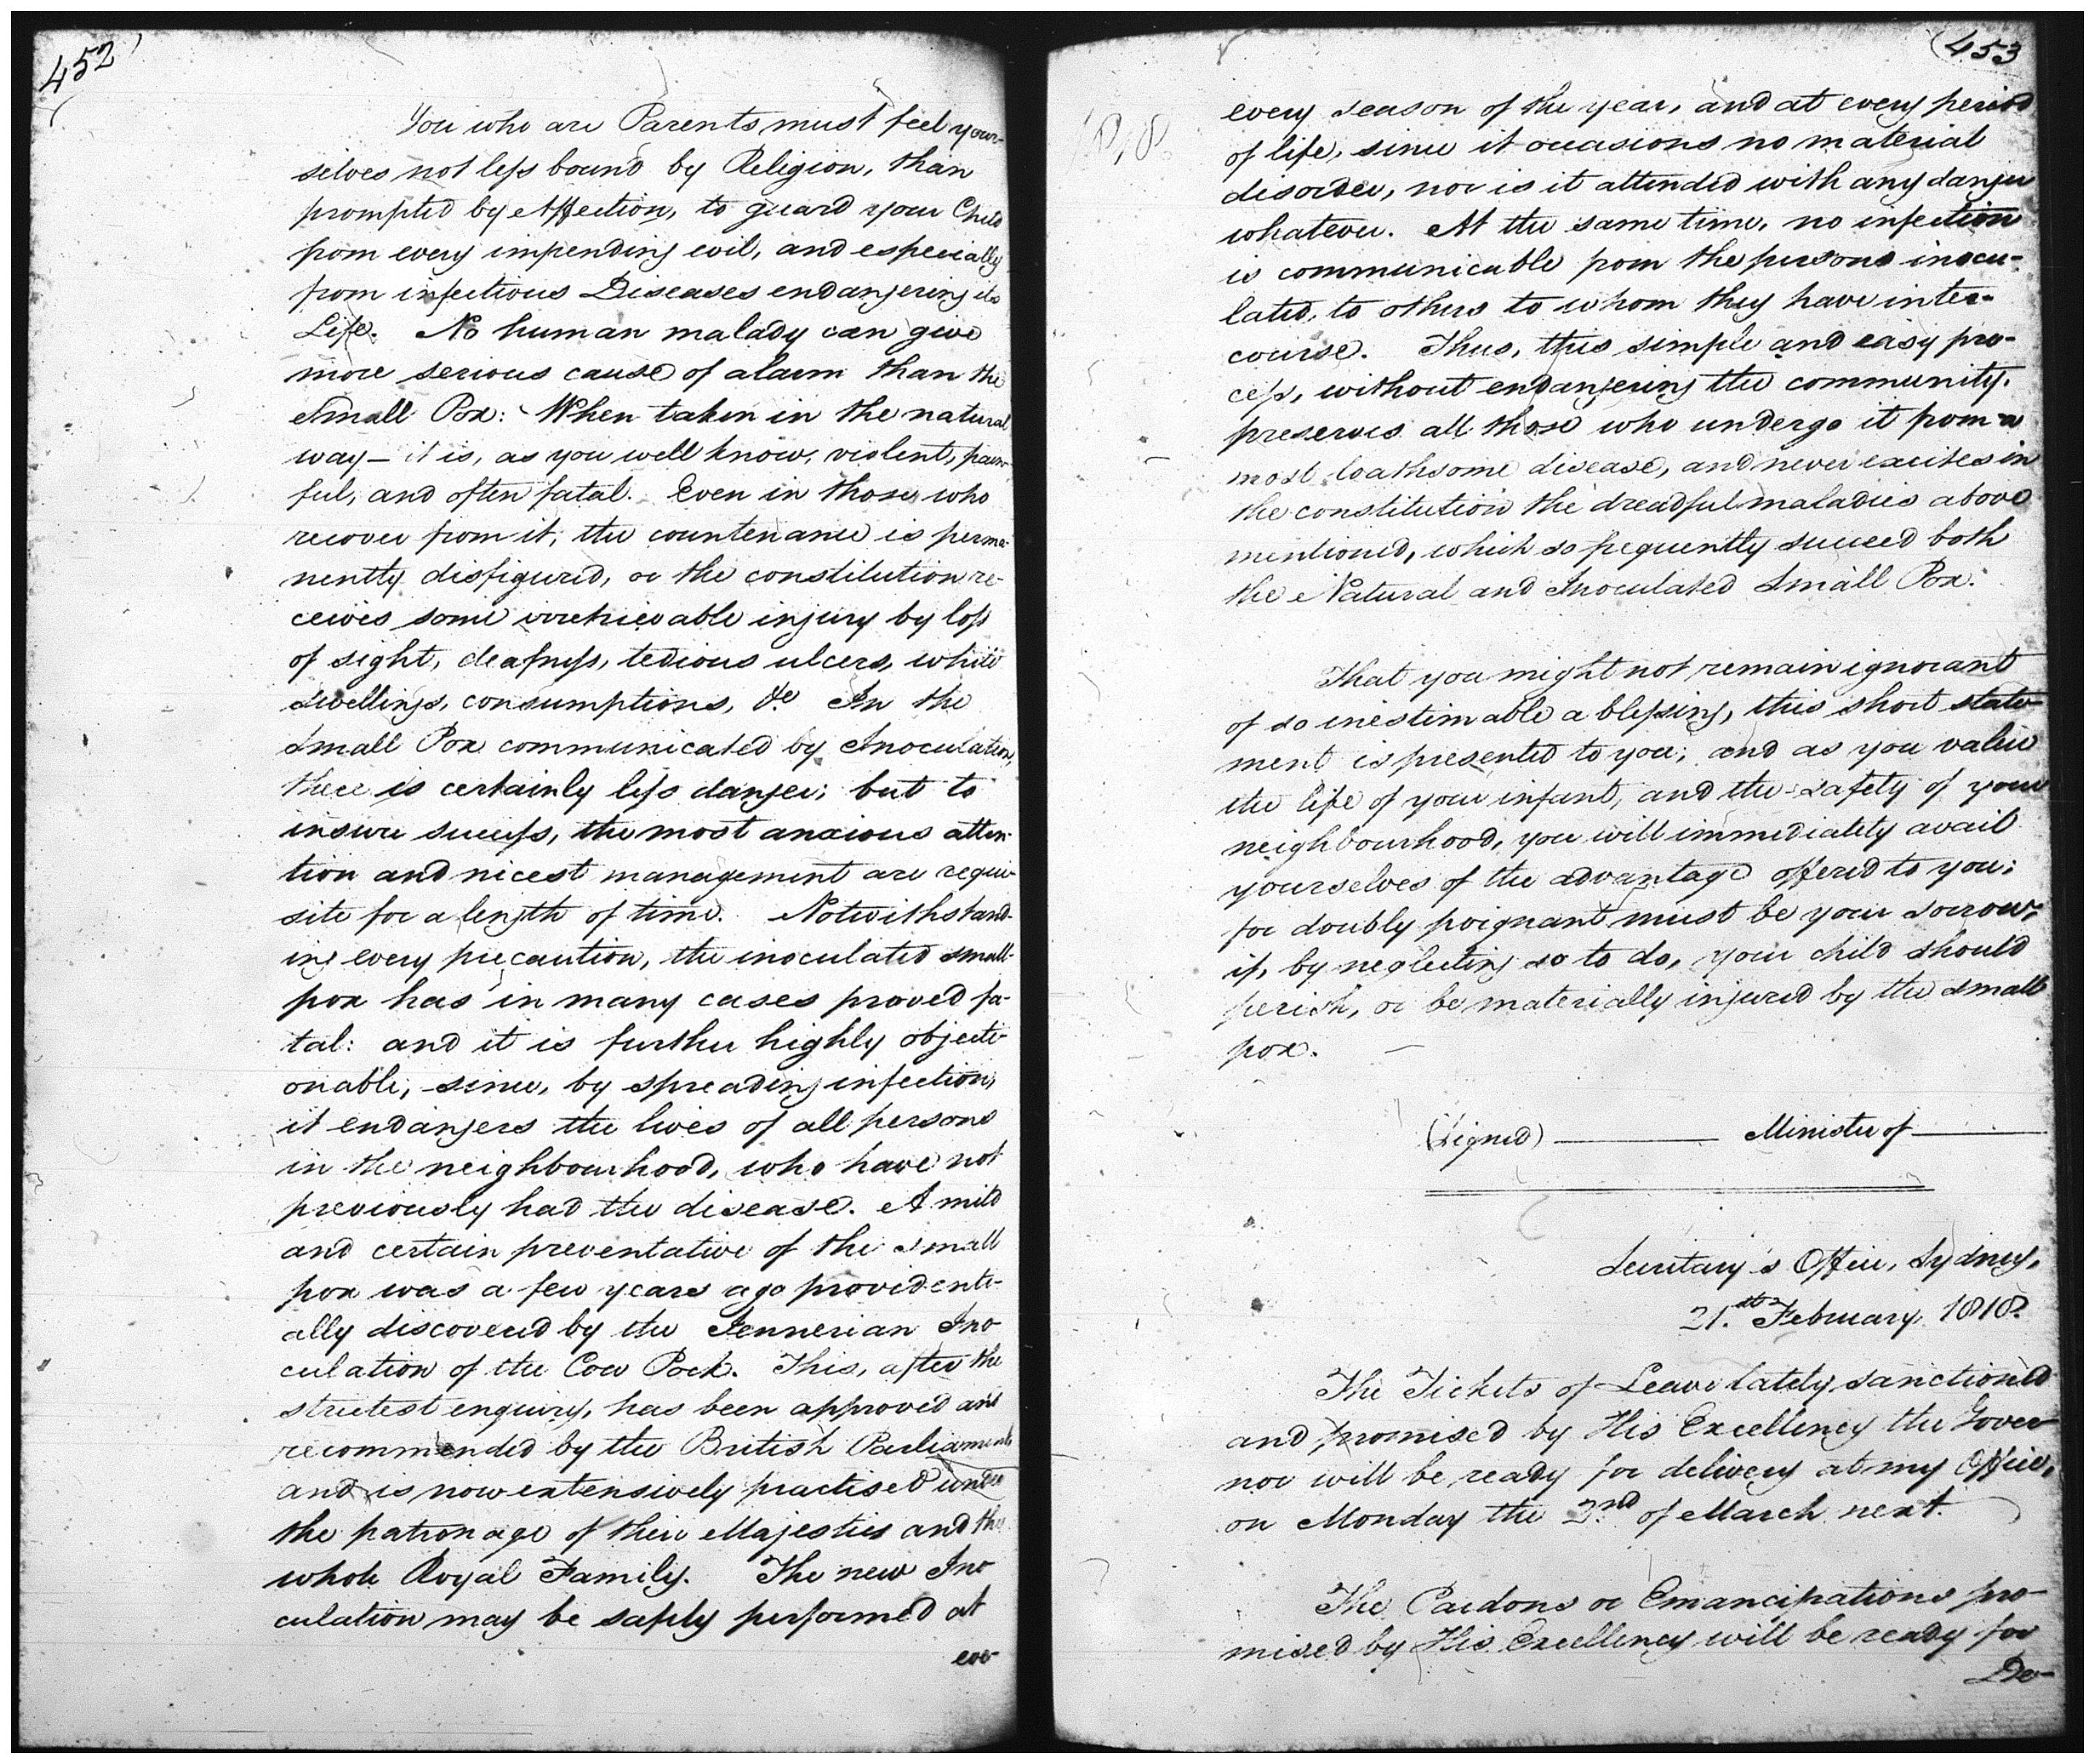 452
You who are Parents must feel your-
selves not less bound by Religion, than
prompted by Affection, to guard your Child
from every impending evil, and especially
from infectious Diseases endangering its
Life. No human malady can give
more serious cause of alarm than the
Small Pox: When taken in the natural
way – it is, as you well know, violent, pain-
ful, and often fatal. Even in those who
recover from it, the countenance is perma-
nently disfigured, or the constitution re-
ceives some irretrievable injury by loss
of sight, deafness, tedious ulcers, white
swellings, consumptions, &c. In the
Small Pox communicated by Inoculation,
there is certainly less danger; but to
insure success, the most anxious atten-
tion and nicest management are requi-
site for a length of time. Notwithstand-
ing every precaution, the inoculated small-
pox has in many cases proved fa-
tal: and it is further highly objecti-
onable, since, by spreading infection,
it endangers the lives of all persons
in the neighbourhood, who have not
previously had the disease. A mild
and certain preventative of the small
pox was a few years ago providenti-
ally discovered by the Jennerian Ino
culation of the Cow Pock. This, after the
strictest enquiry, has been approved and
recommended by the British Parliament
and is now extensively practised under
the patronage of their Majesties and the
whole Royal Family. The new Ino
culation may be safely performed at
eve-
453
1818.
every season of the year, and at every period
of life, since it occasions no material
disorder, nor is it attended with any danger
whatever. At the same time, no infection
is communicable from the persons inocu-
lated, to others to whom they have inter-
course. Thus, this simple and easy pro-
cess, without endangering the community,
preserves all those who undergo it from a
most loathsome disease, and never excites in
the constitution the dreadful maladies above
mentioned, which so frequently succeed both
the Natural and Inoculated Small Pox.
That you might not remain ignorant
of so inestimable a blessing, this short state-
ment is presented to you; and as you value
the life of your infant, and the safety of your
neighbourhood, you will immediately avail
yourselves of the advantage offered to you;
for doubly poignant must be your sorrow,
if, by neglecting so to do, your child should
perish, or be materially injured by the small
pox. —
(Signed) ——— Minister of ———
Secretary's Office, Sydney,
21.st February, 1818.
The Tickets of Leave lately sanctioned
and promised by His Excellency the Gover
nor will be ready for delivery at my Office,
on Monday the 2.nd of March next.
The Pardons or Emancipations pro-
mised by His Excellency will be ready for
De-